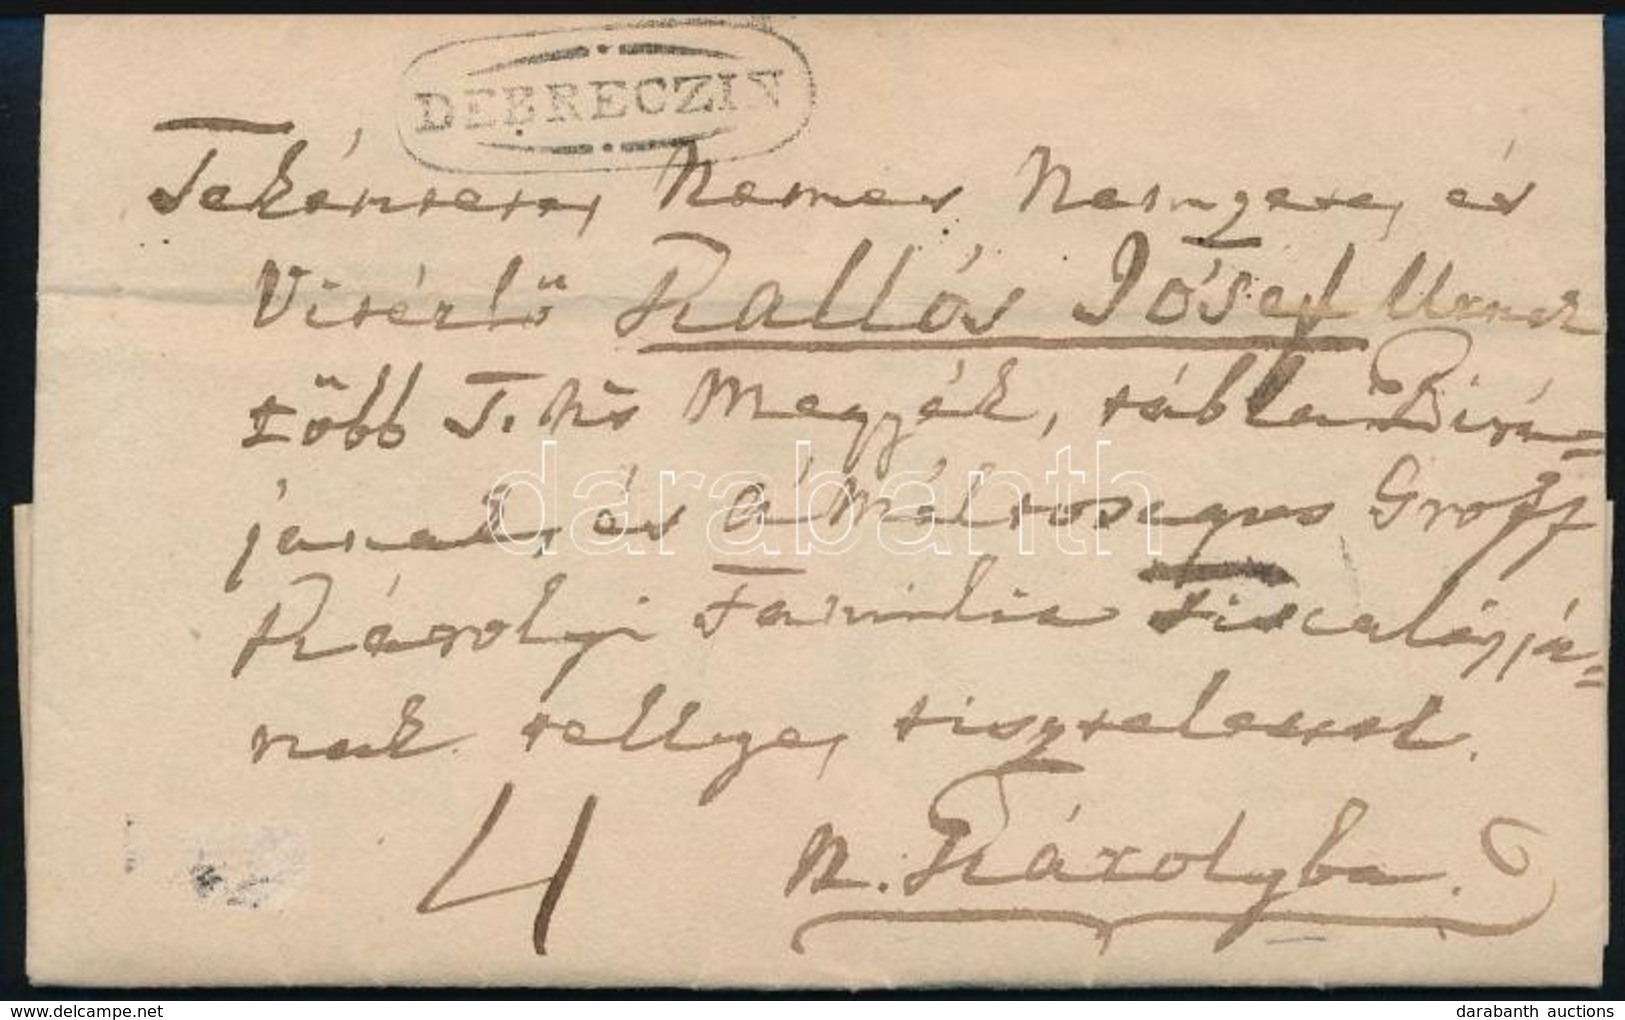 DEBRECZIN
Tekéntetes, Nemes Nemzetes, és
Vitézlő Kallós Jósef Urnak
több T. Ns Megyék, tábla Birá=
jának, és á Méltoságos Groff
Károlyi Familia Fiscalássá=
nak. tellyes, tisztelettel.
4
N. Károlyba.
darabanth
darabanth auctions